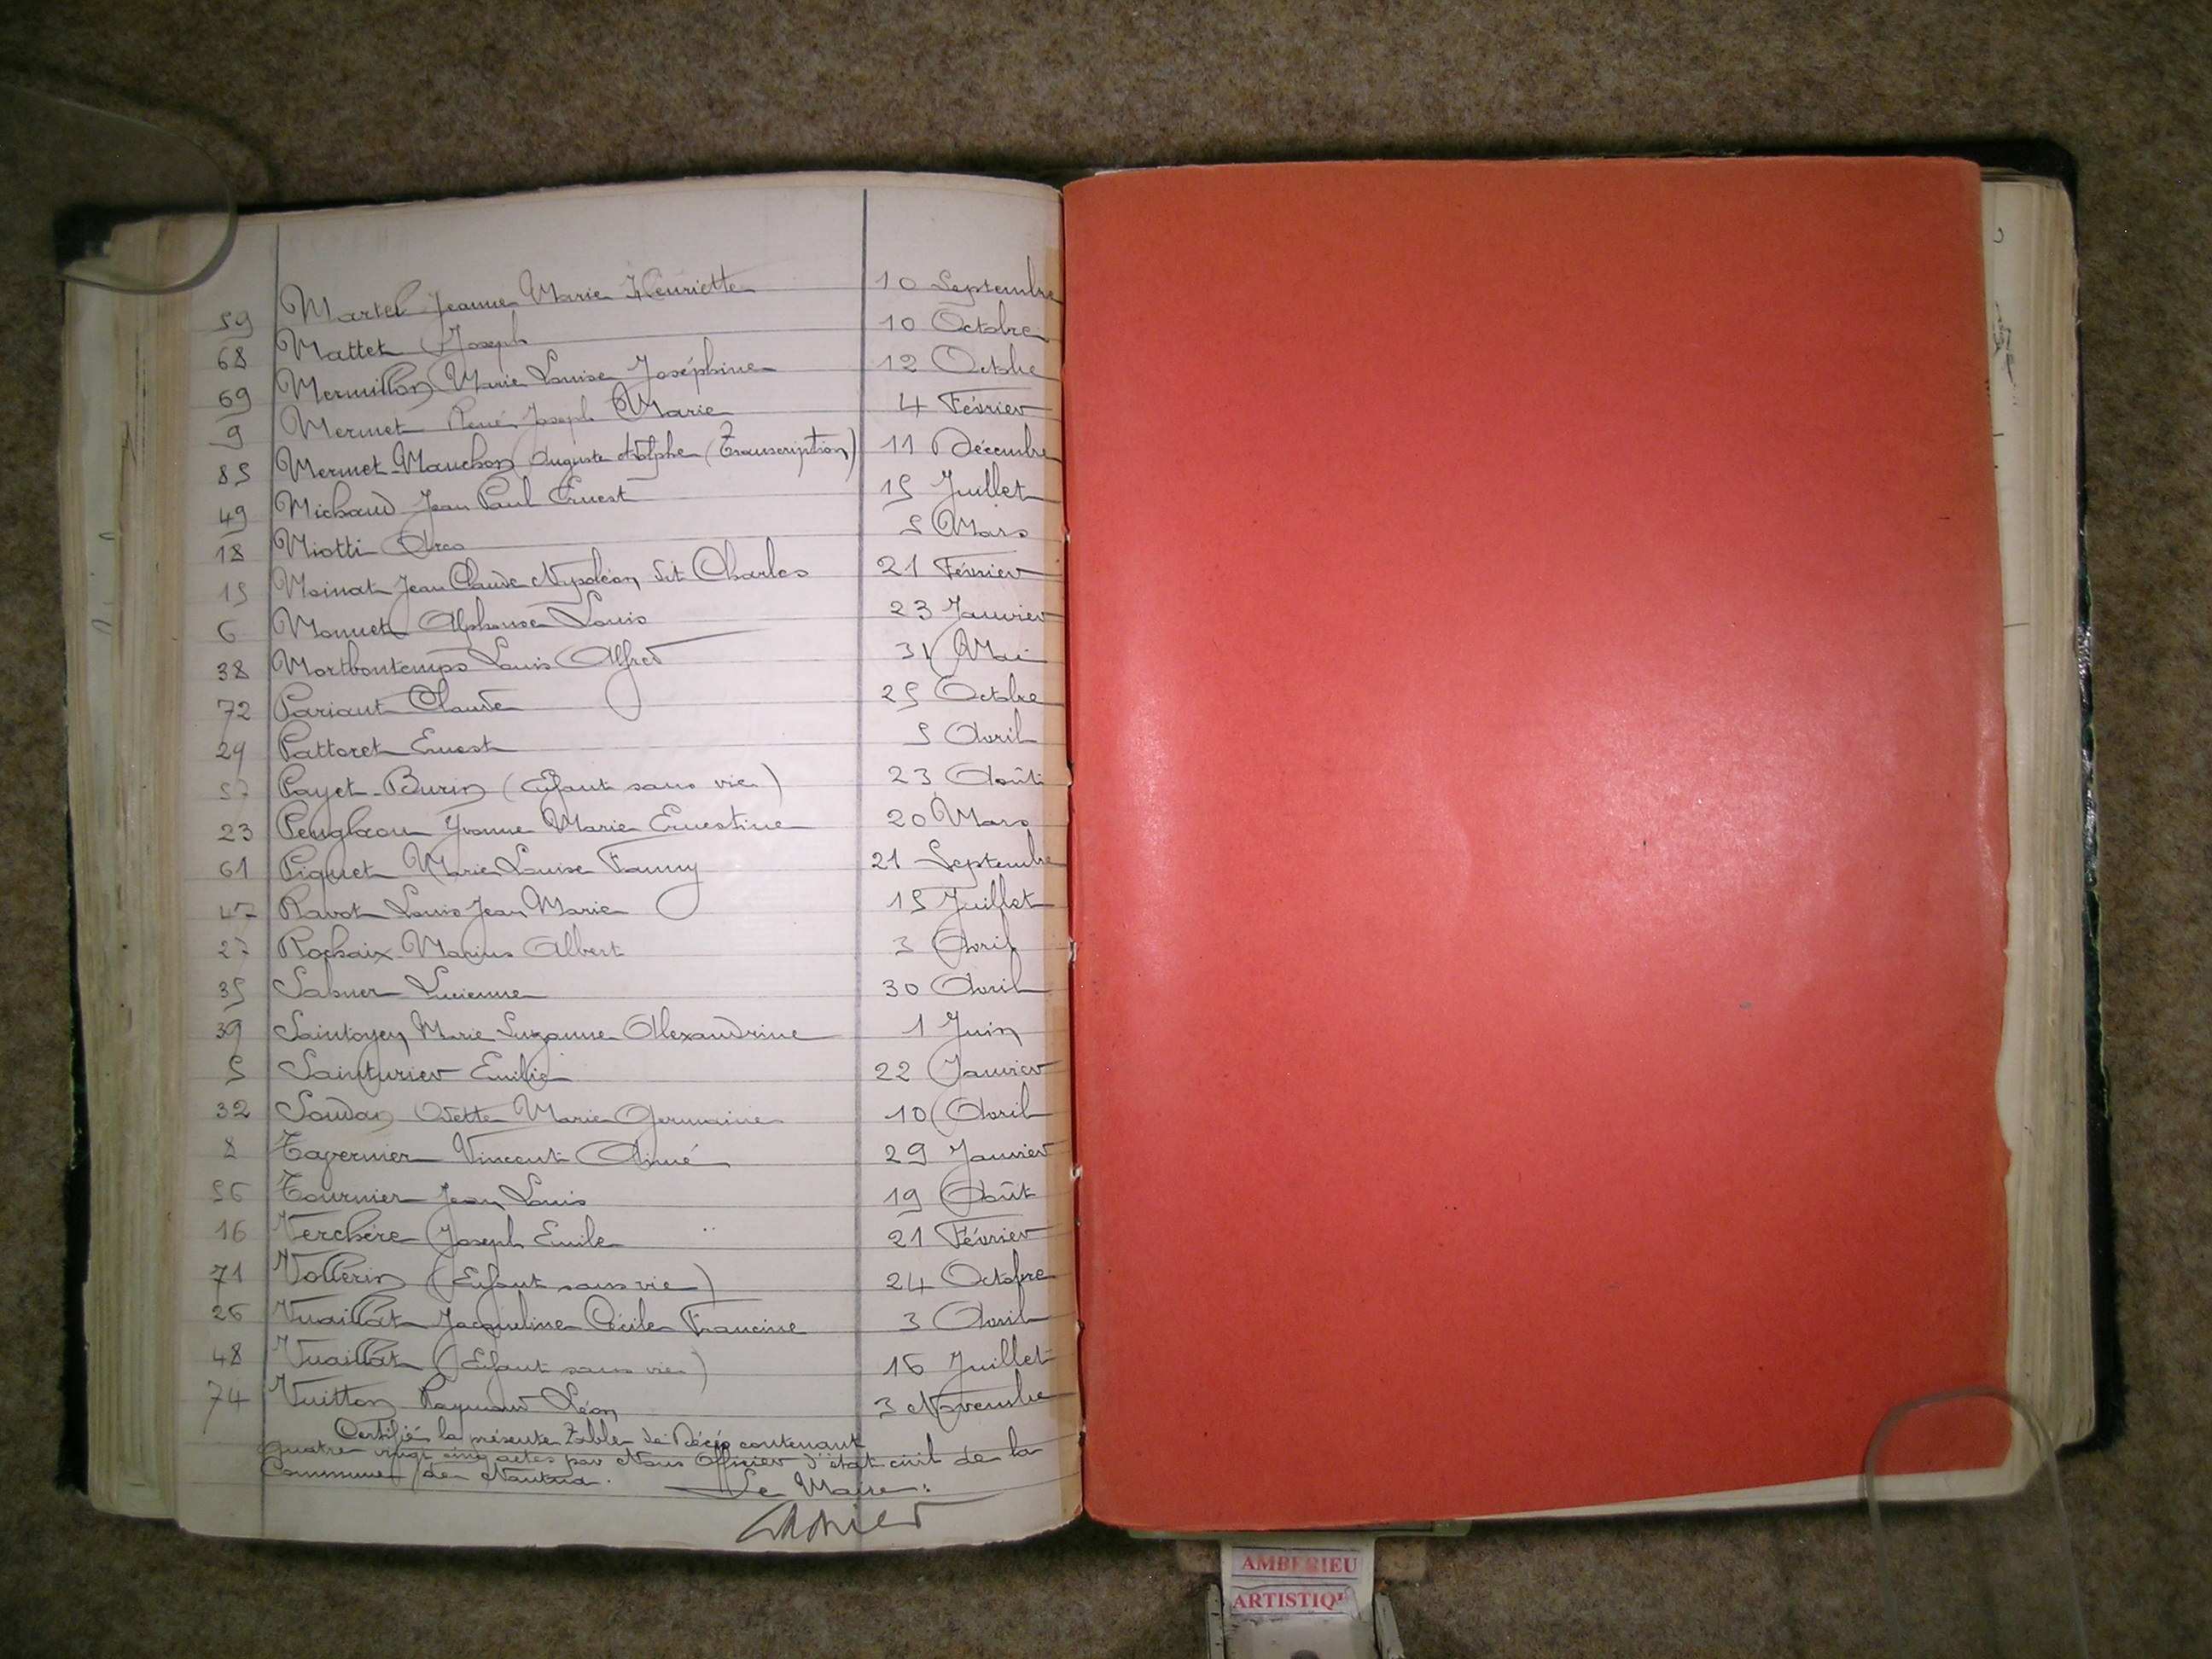 59 Martel Jeanne Marie Henriette 10 Septembre
68 Mattet Joseph 10 Octobre
69 Mermillon Marie Louise Joséphine 12 Octobre
9 Mermet René Joseph Marie 4 Février
85 Mermet-Manchon Auguste Adolphe (Transcription) 11 Décembre
49 Michaud Jean Paul Ernest 15 Juillet
18 Miotti 5 Mars
15 Moinat Jean Claude Napoléon dit Charles 21 Février
6 Monnet Alphonse Louis 23 Janvier
38 Mortbontemps Louis Alfred 31 Mai
72 Pariaut Claude 25 Octobre
29 Pattoret Ernest 5 Avril
57 Payet-Burin (Enfant sans vie) 23 Août
23 Penglaou Yvonne Marie Ernestine 20 Mars
61 Piquet Marie Louise Fanny 21 Septembre
47 Ravot Louis Jean Marie 15 Juillet
27 Rochaix Marius Albert 3 Avril
35 Sabner Lucienne 30 Avril
39 Saintoyen Marie Suzanne Alexandrine 1 Juin
5 Sainturier Emilie 22 Janvier
32 Soudan Odette Marie Germaine 10 Avril
8 Tavernier Vincent Aimé 29 Janvier
56 Tournier Jean Louis 19 Août
16 Verchère Joseph Emile 21 Février
71 Vollerin (Enfant sans vie) 24 Octobre
26 Vuaillat Jacqueline Cécile Francine 3 Avril
48 Vuaillat (Enfant sans vie) 16 Juillet
74 Vuitton Raymond Léon 3 Novembre
Certifié la présente Table de Décès contenant
quatre vingt cinq actes par Nous Officier d'état civil de la
Commune de Nantua.
Le Maire:
AMBERIEU
ARTISTIQU